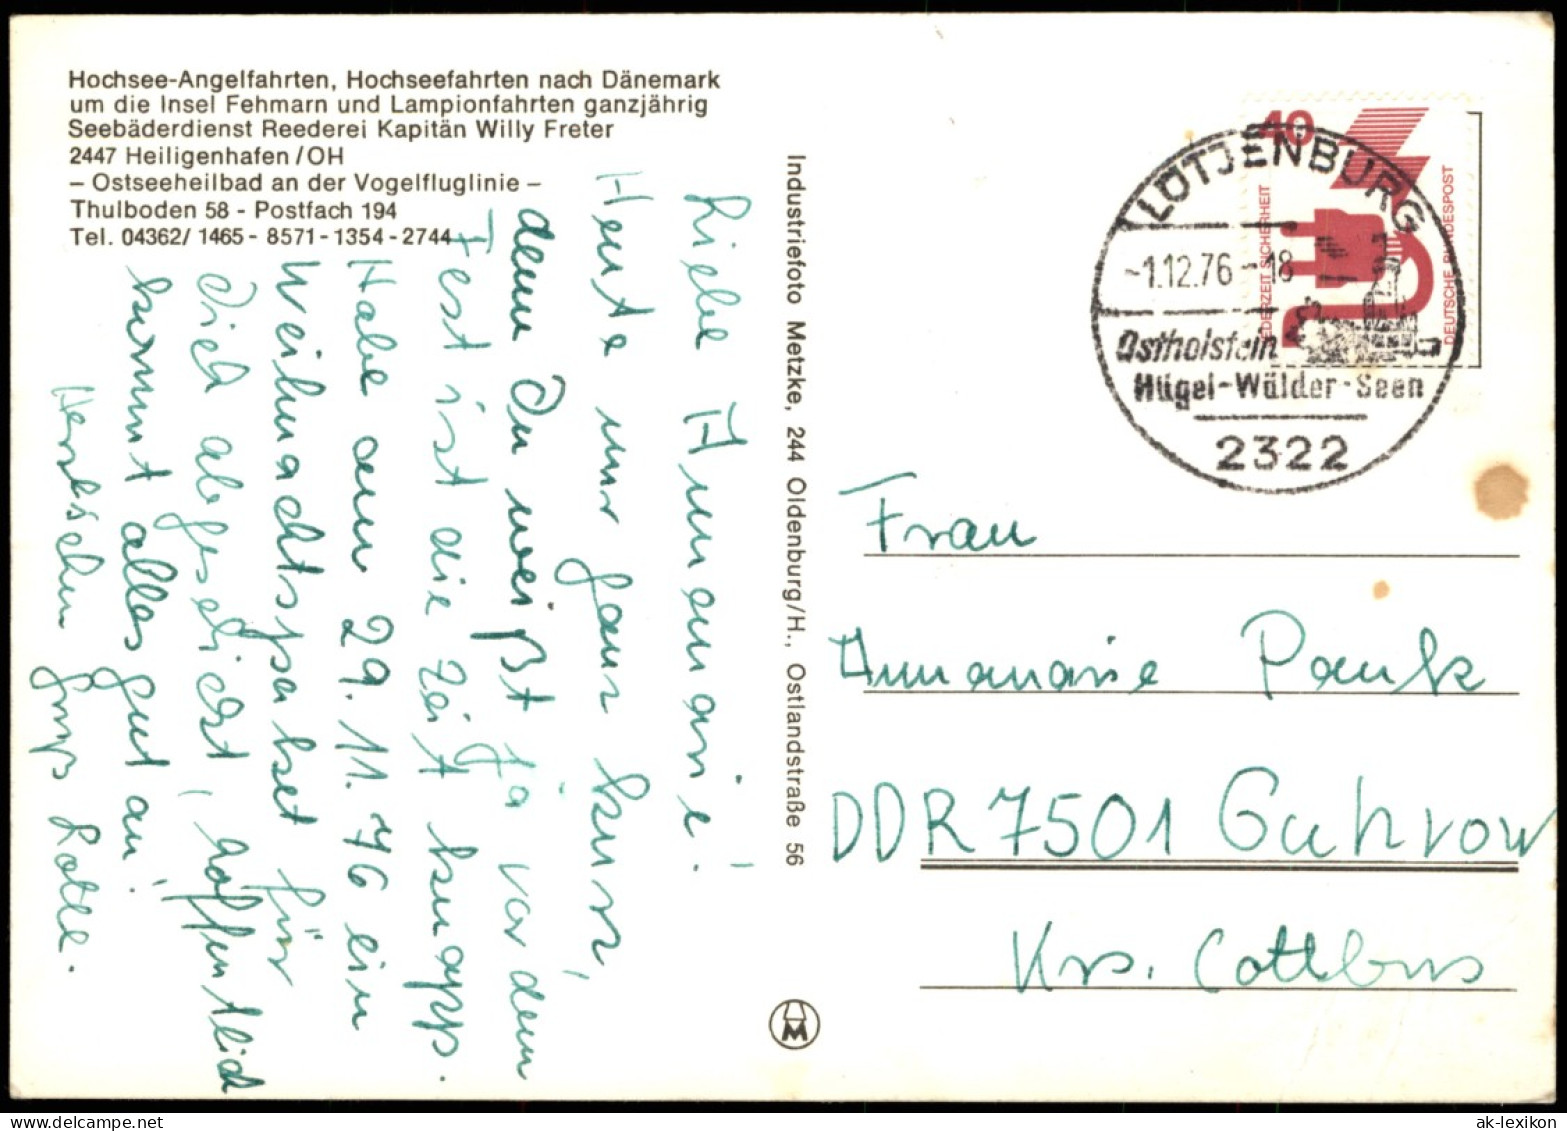 Hochsee-Angelfahrten, Hochseefahrten nach Dänemark
um die Insel Fehmarn und Lampionfahrten ganzjährig
Seebäderdienst Reederei Kapitän Willy Freter
2447 Heiligenhafen/OH
– Ostseeheilbad an der Vogelfluglinie –
Thulboden 58 - Postfach 194
Tel. 04362/ 1465 - 8571 - 1354 - 2744
Liebe Annemarie!
Heute nur ganz kurz,
denn Du weißt ja vor dem
Fest ist die Zeit knapp.
Habe am 29. 11. 76 ein
Weihnachtspaket für
Dich abgeschickt, hoffentlich
kommt alles gut an!
Herzlichen Gruß Lotte.
Industriefoto Metzke, 244 Oldenburg/H., Ostlandstraße 56
M
40
JEDERZEIT SICHERHEIT
DEUTSCHE BUNDESPOST
LÜTJENBURG
-1.12.76 -18
Ostholstein
Hügel-Wälder-Seen
2322
Frau
Annemarie Paulk
DDR 7501 Guhrow
Krs. Cottbus
ak-lexikon